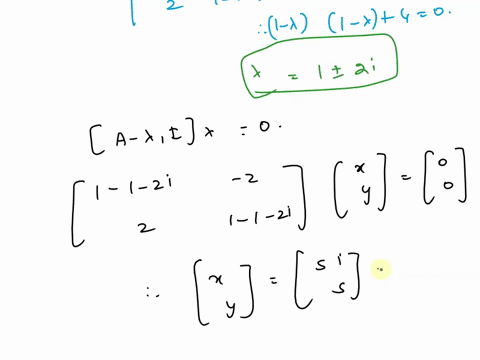 2 1-
∴(1-λ) (1-λ)+4=0.
λ = 1 ± 2i
[A-λ₁I] x = 0.
[1-1-2i -2] [x] = [0]
[2 1-1-2i] [y] [0]
∴ [x] = [s i]
[y] [s]